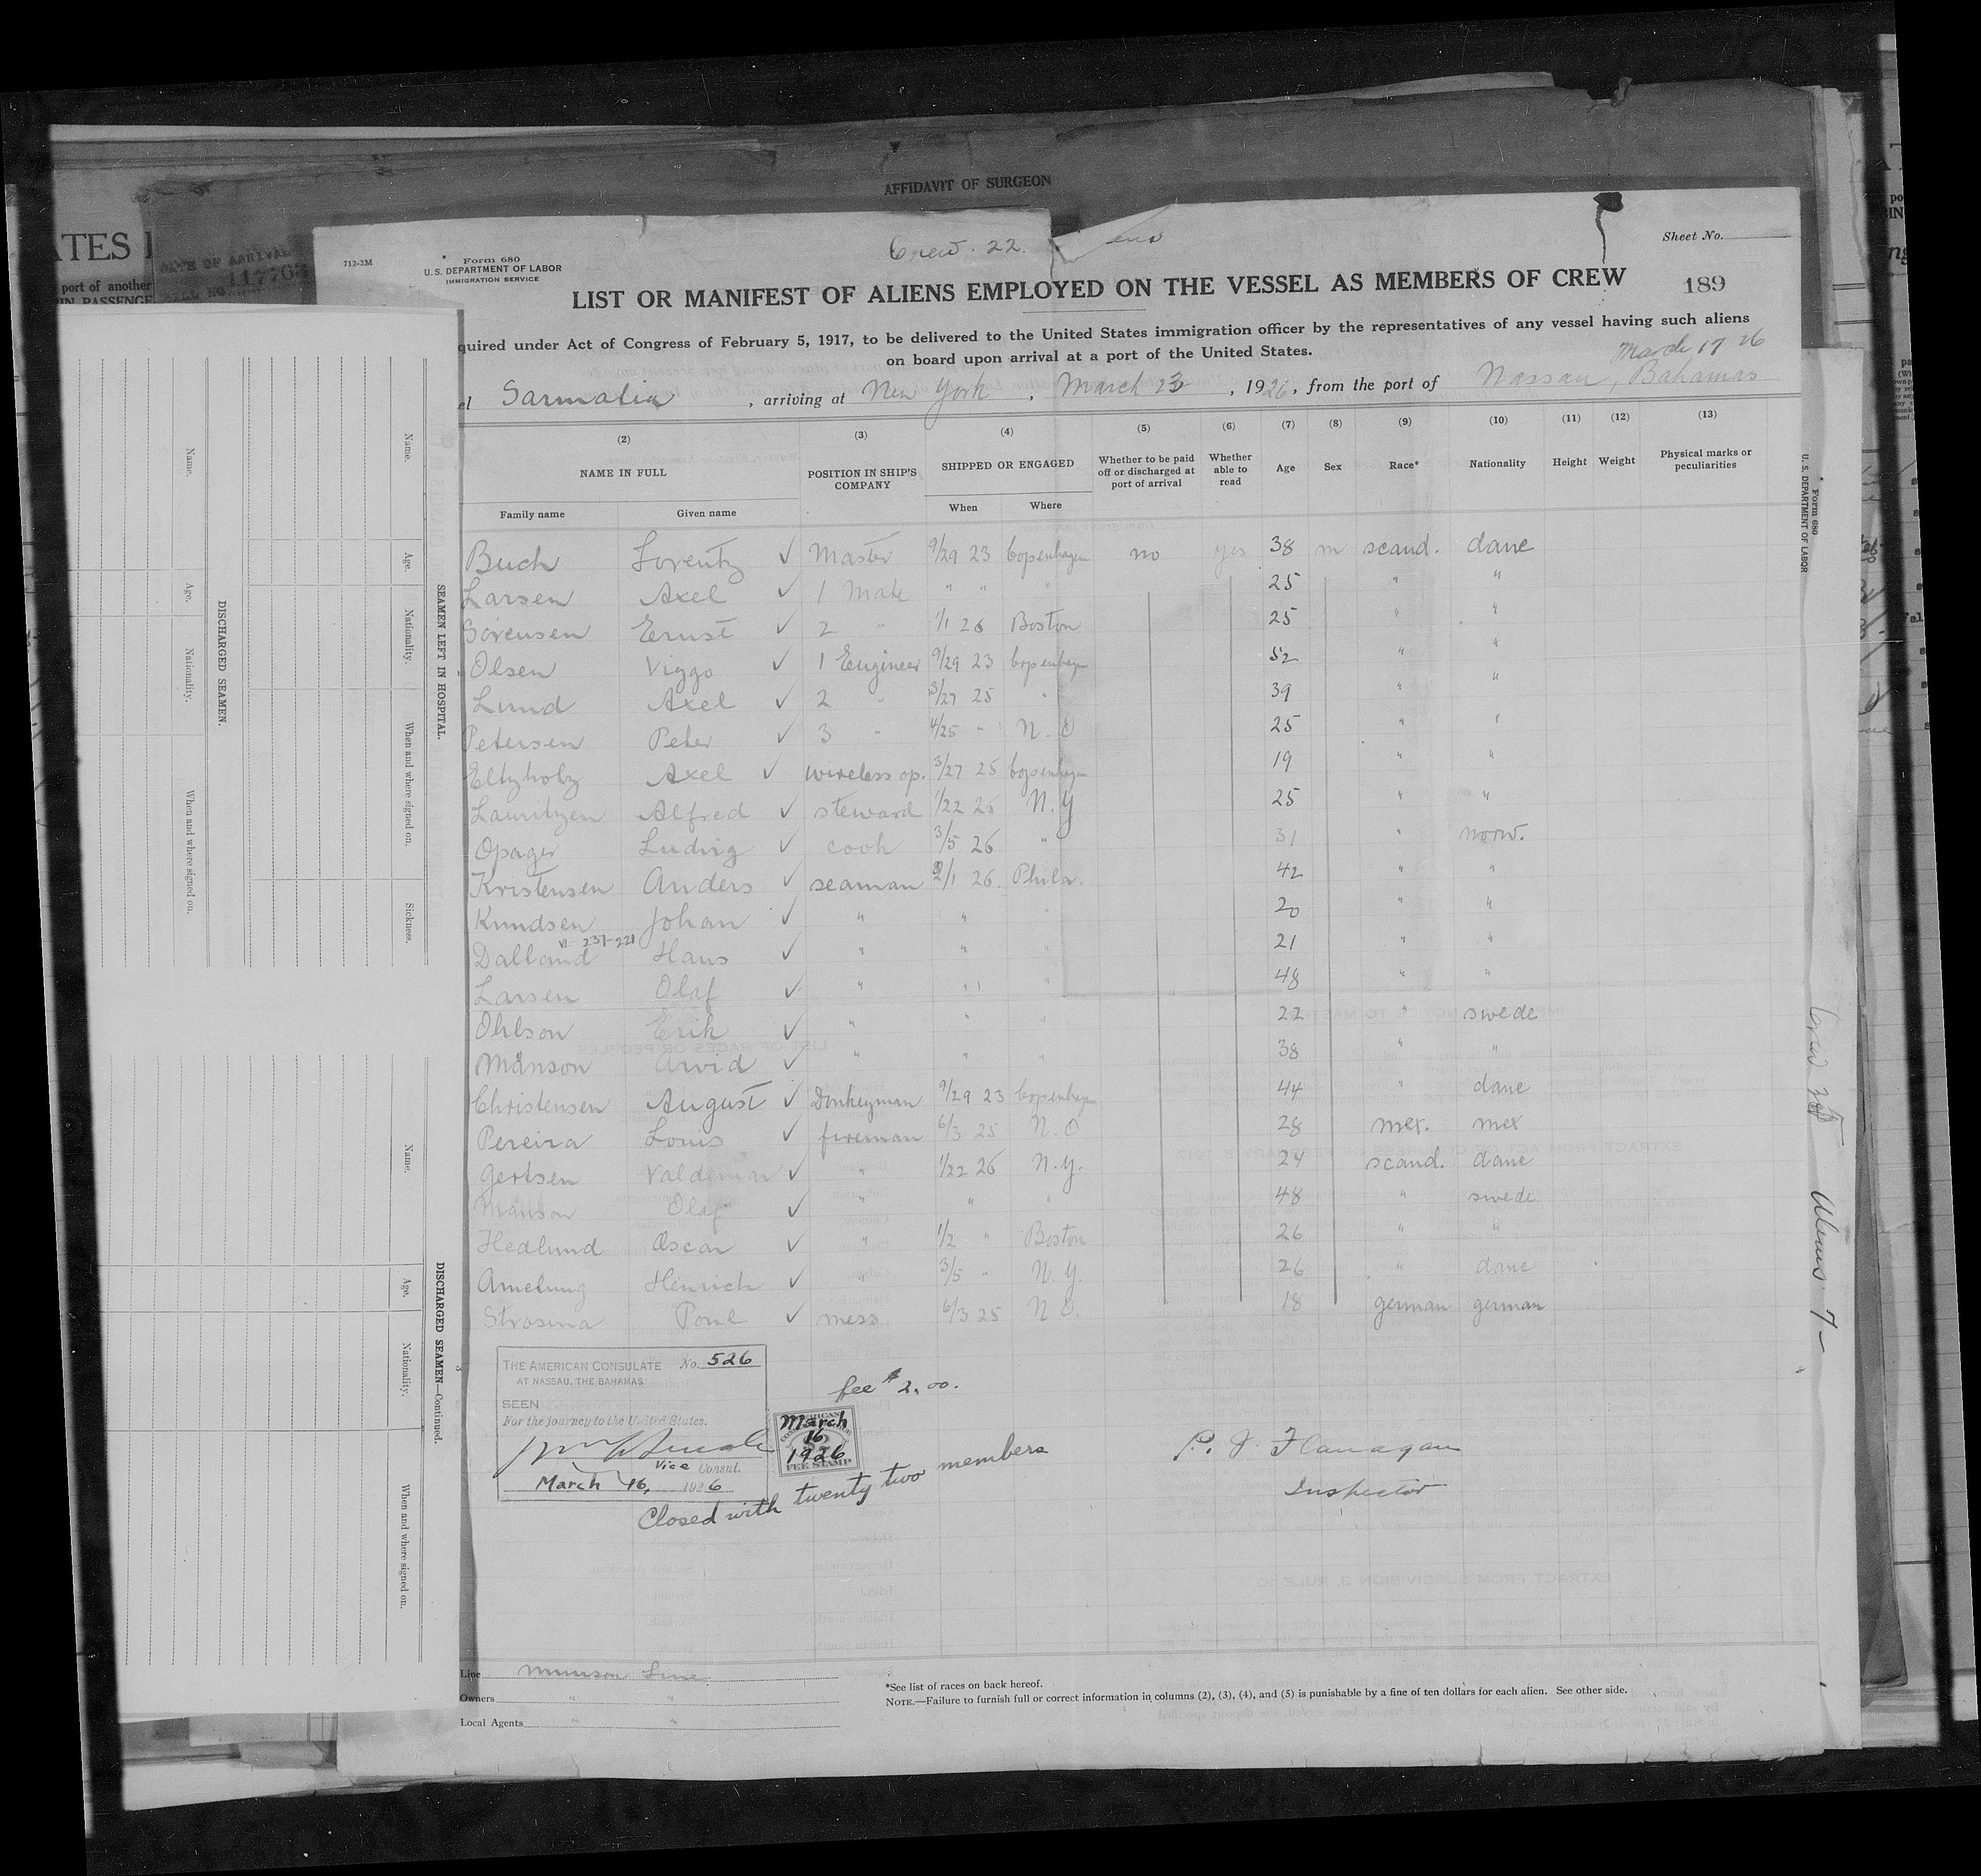 AFFIDAVIT OF SURGEON
ATES
DATE OF ARRIVAL
117703
port of another
IN PASSENGE
Crew. 22.
Sheet No.
712-2M
Form 680
U. S. DEPARTMENT OF LABOR
IMMIGRATION SERVICE
189
LIST OR MANIFEST OF ALIENS EMPLOYED ON THE VESSEL AS MEMBERS OF CREW
quired under Act of Congress of February 5, 1917, to be delivered to the United States immigration officer by the representatives of any vessel having such aliens
on board upon arrival at a port of the United States.
March 17 26
el Sarmatia, arriving at New York, March 23, 1926, from the port of Nassau, Bahamas
(2) (3) (4) (5) (6) (7) (8) (9) (10) (11) (12) (13)
NAME IN FULL POSITION IN SHIP'S COMPANY SHIPPED OR ENGAGED Whether to be paid off or discharged at port of arrival Whether able to read Age Sex Race* Nationality Height Weight Physical marks or peculiarities
Family name Given name When Where
Buch Lorentz ✓ Master 9/29 23 Copenhagen no yes 38 m scand. dane
Larsen Axel ✓ 1 Mate " " " 25 " "
Sörensen Ernst ✓ 2 " 1/1 26 Boston 25 " "
Olsen Viggo ✓ 1 Engineer 9/29 23 Copenhagen 52 " "
Lund Axel ✓ 2 " 3/27 25 " 39 " "
Petersen Peter ✓ 3 " 4/25 " N. O 25 " "
Eltzholz Axel ✓ wireless op. 3/27 25 Copenhagen 19 " "
Lauritzen Alfred ✓ steward 1/22 26 N. Y 25 " "
Opager Ludvig ✓ cook 3/5 26 " 31 " norw.
Kristensen Anders ✓ seaman 2/1 26. Phila. 42 " "
Knudsen Johan ✓ " " " 20 " "
VI 237-221
Dalland Hans ✓ " " " 21 " "
Larsen Olaf ✓ " " " 48 " "
Ohlson Erik ✓ " " " 22 " swede
Månson Arvid ✓ " " " 38 " "
Christensen August ✓ Donkeyman 9/29 23 Copenhagen 44 " dane
Pereira Louis ✓ fireman 6/3 25 N. O 28 mex. mex
Gertsen Valdemar ✓ " 1/22 26 N. Y. 24 scand. dane
Månson Olaf ✓ " " " 48 " swede
Hedlund Oscar ✓ " 1/2 " Boston 26 " "
Amelung Henrich ✓ " 3/5 " N. Y. 26 " dane
Strosina Poul ✓ mess 6/3 25 N O. 18 german german
THE AMERICAN CONSULATE No. 526
AT NASSAU, THE BAHAMAS
SEEN
For the journey to the United States.
Vice Consul.
March 16, 1926
fee $2.00.
March
16
1926
FEE STAMP
Closed with twenty two members
P. J. Flanagan
Inspector
Line Munson Line
Owners " "
Local Agents " "
*See list of races on back hereof.
NOTE.—Failure to furnish full or correct information in columns (2), (3), (4), and (5) is punishable by a fine of ten dollars for each alien. See other side.
Name. Age. Nationality. When and where signed on.
DISCHARGED SEAMEN.
Name. Age. Nationality. When and where signed on. Sickness.
SEAMEN LEFT IN HOSPITAL.
Name. Age. Nationality. When and where signed on.
DISCHARGED SEAMEN—Continued.
Form 680
U. S. DEPARTMENT OF LABOR